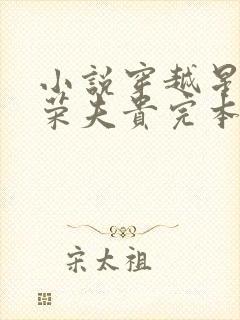 小說穿越是
榮夫貴完本
宋太祖